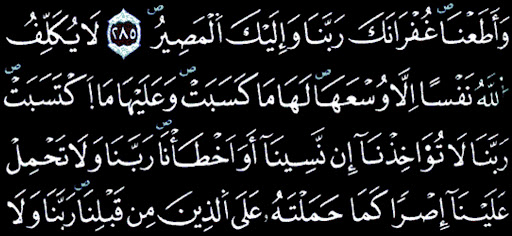 وَأَطَعْنَا ۖ غُفْرَانَكَ رَبَّنَا وَإِلَيْكَ ٱلْمَصِيرُ ۖ ۝٢٨٥ لَا يُكَلِّفُ
ٱللَّهُ نَفْسًا إِلَّا وُسْعَهَا ۖ لَهَا مَا كَسَبَتْ ۖ وَعَلَيْهَا مَا ٱكْتَسَبَتْ ۖ
رَبَّنَا لَا تُوَاخِذْنَآ إِن نَّسِينَآ أَوَ اَخْطَأْنَا ۖ رَبَّنَا وَلَا تَحْمِلْ
عَلَيْنَآ إِصْرًا كَمَا حَمَلْتَهُۥ عَلَى ٱلَّذِينَ مِن قَبْلِنَا ۖ رَبَّنَا وَلَا